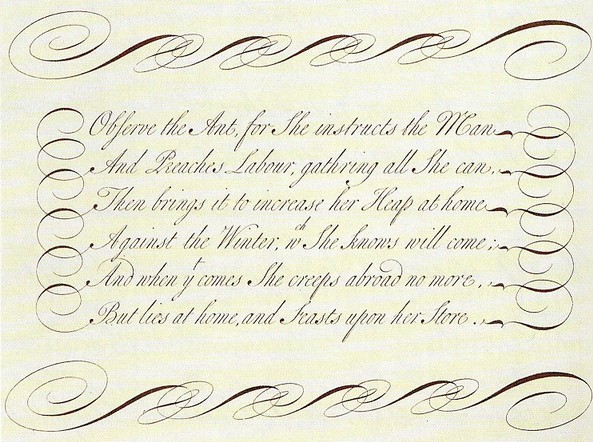 Obſerve the Ant, for She inſtructs the Man
And Preaches Labour, gath'ring all She can,
Then brings it to increase her Heap at home
Against the Winter, wᶜʰ She knows will come;
And when yᵗ comes She creeps abroad no more,
But lies at home, and Feasts upon her Store.